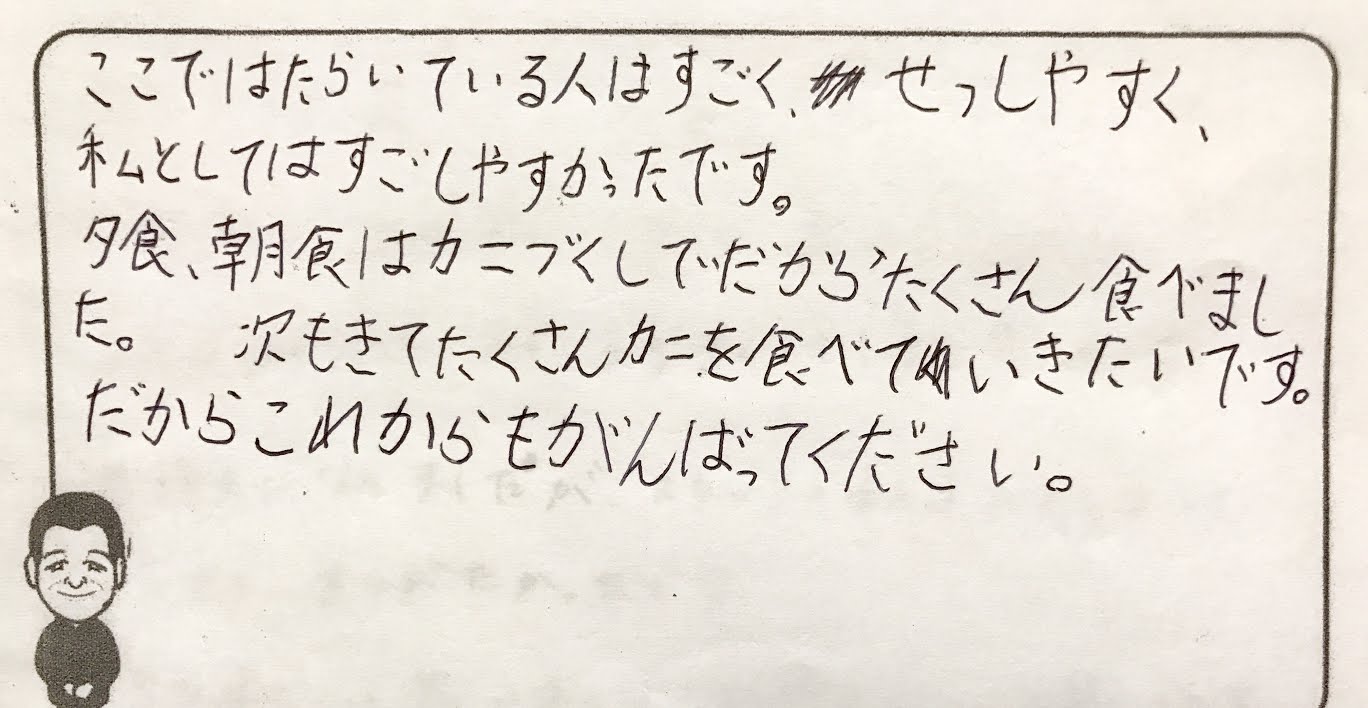 ここではたらいている人はすごく、せっしやすく、
私としてはすごしやすかったです。
夕食、朝食はカニづくしでだからたくさん食べまし
た。 次もきてたくさんカニを食べていきたいです。
だからこれからもがんばってください。